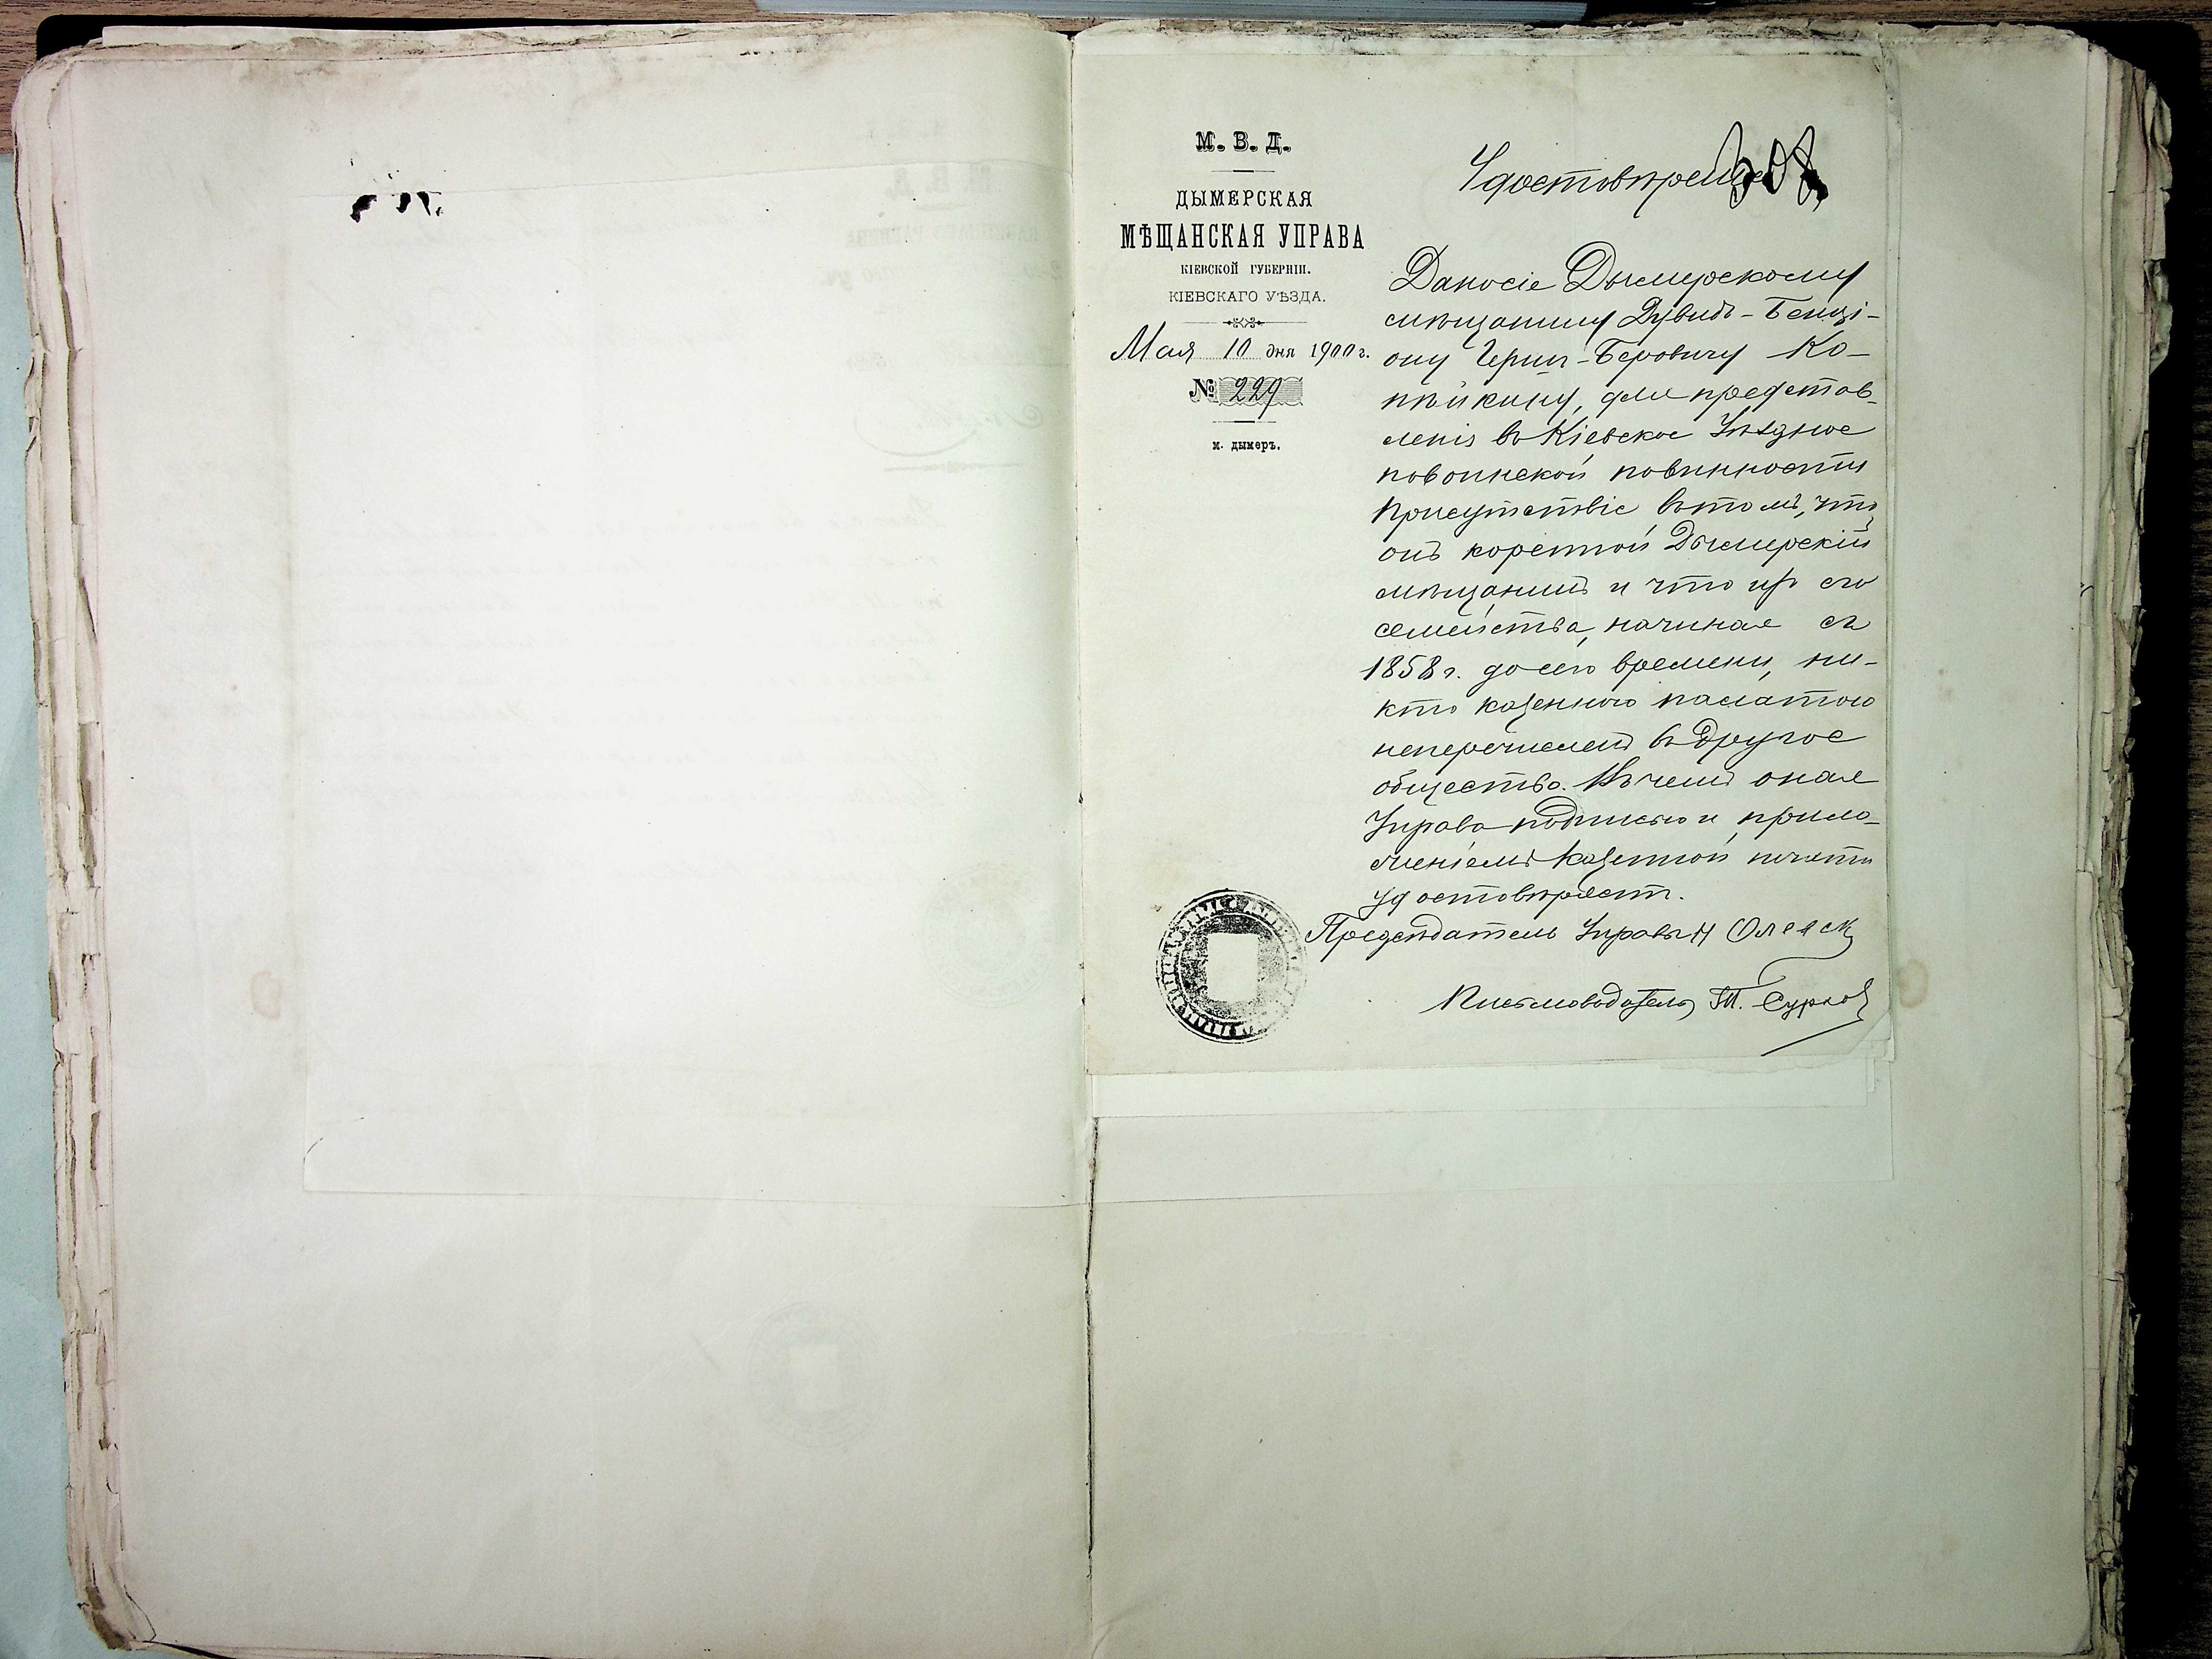 М. В. Д.
ДЫМЕРСКАЯ
МѢЩАНСКАЯ УПРАВА
КІЕВСКОЙ ГУБЕРНІИ.
КІЕВСКАГО УѢЗДА.
Мая 10 дня 1900 г.
№ 229
м. дымеръ.
Удостовѣреніе
Дано сіе Дымерскому
мѣщанину Дувидъ-Бенці-
ону Герш-Беровичу Ко-
пѣйкину, для представ-
ленія въ Кіевское Уѣздное
по воинской повинности
Присутствіе въ томъ, что
онъ коренной Дымерскій
мѣщанинъ и что изъ его
семейства, начиная съ
1858 г. до сего времени, ни-
кто казенною палатою
неперечисленъ въ другое
общество. Въ чемъ оная
Управа подписью и прило-
женіемъ казенной печати
удостовѣряетъ.
Предсѣдатель Управы
Письмоводитель